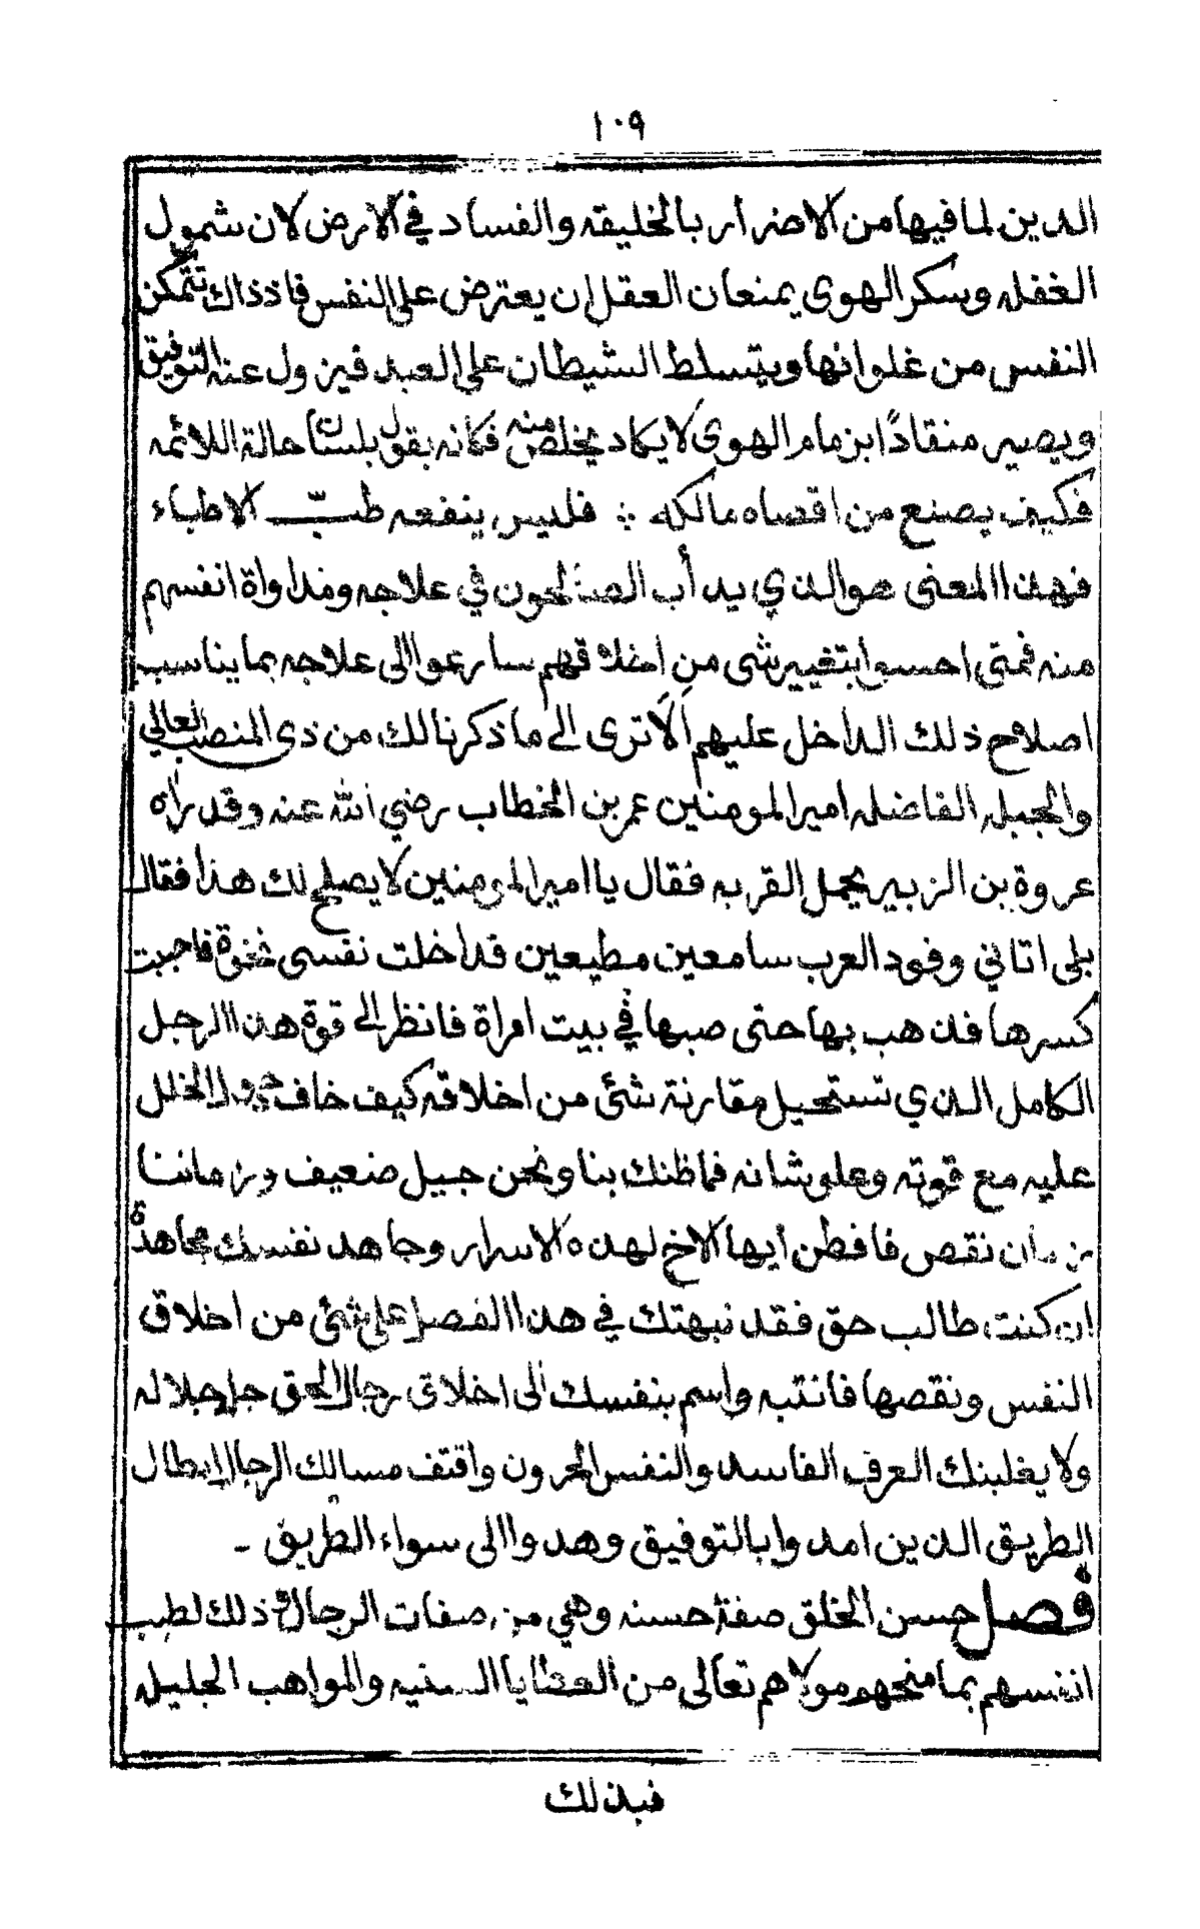 ١٠٩
الدين لما فيها من الاضرار بالخليقه والفساد في الارض لان شمول
الغفله وسكر الهوى يمنعان العقل ان يعترض على النفس فاذ ذاك تتمكن
النفس من غلوائها ويتسلط الشيطان على العبد فيزول عنه التوفيق
ويصير منقادًا بزمام الهوى لا يكاد يخلص منه فكانه يقول بلسان حالة اللائمه
فكيف يصنع من اقصاه مالكه ؞ فليس ينفعه طبّ الاطباء
فهذا المعنى هو الذي يدأب الصالحون في علاجه ومداواة انفسهم
منه فمتى احسوا بتغيير شى من اخلاقهم سارعوا الى علاجه بما يناسب
اصلاح ذلك الداخل عليهم اَلَا ترى الى ما ذكرنا لك من ذى المنصب العالي
والجبله الفاضله امير المومنين عمر بن الخطاب رضي الله عنه وقد رأه
عروة بن الزبير يحمل القربه فقال يا امير المومنين لا يصلح لك هذا فقال
بلى اتاني وفود العرب سامعين مطيعين قداخلت نفسى نخوة فاحببت
كسرها فذهب بها حتى صبها في بيت امراة فانظر الى قوة هذا الرجل
الكامل الذي تستحيل مقارنة شئى من اخلاقه كيف خاف دخول الخلل
عليه مع قوته وعلو شانه فما ظنك بنا ونحن جيل ضعيف وزماننا
زمان نقص فافطن ايها الاخ لهذه الاسرار وجاهد نفسك مجاهدة
ان كنت طالب حق فقد نبهتك في هذا الفصل على شئى من اخلاق
النفس ونقصها فانتبه واسم بنفسك الى اخلاق رجال الحق جل جلاله
ولا يغلبنك العرف الفاسد والنفس الحرون واقتف مسالك الرجال ابطال
الطريق الذين امدوا بالتوفيق وهدوا الى سواء الطريق ۔
فصل حسن الخلق صفة حسنه وهي من صفات الرجال و ذلك لطيب
انفسهم بما منحهم مولاهم تعالى من العطايا السنيه والمواهب الجليله
فبذلك